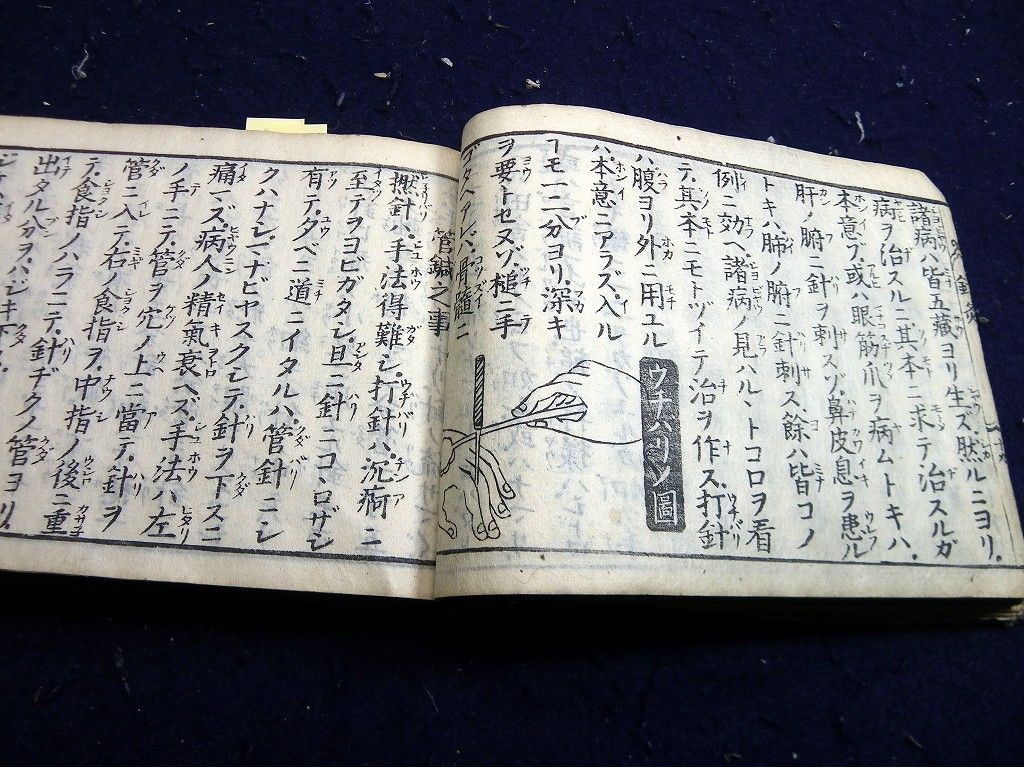 諸病ハ皆五藏ヨリ生ズ然ルニヨリ
病ヲ治スルニ其本ニ求テ治スルガ
本意ゾ或ハ眼筋爪ヲ病ムトキハ
肝ノ腑ニ針ヲ刺スゾ鼻皮息ヲ患ル
トキハ肺ノ腑ニ針刺ス餘ハ皆コノ
例ニ效ヘ諸病ノ見ハルヽトコロヲ看
テ其本ニモトヅイテ治ヲ作ス打針
ハ腹ヨリ外ニ用ユル
ハ本意ニアラズ入ル
ヿモ一二分ヨリ深キ
ヲ要トセヌゾ槌ニ手
ゴタヘアレバ骨髓ニ
ウチハリノ圖
管鍼之事
撚針ハ手法得難シ打針ハ沉痾ニ
至テヲヨビガタシ且ニ針ニコヽロザシ
有テタベニ道ニイタルハ管針ニシ
クハナシマナビヤスクシテ針ヲ下スニ
痛マズ病人ノ精氣衰ヘズ手法ハ左
ノ手ニテ管ヲ穴ノ上ニ當テ針ヲ
管ニ入テ右ノ食指ヲ中指ノ後ニ重
テ食指ノハラニテ針ヂクノ管ヨリ
出タル分ヲハジキ下